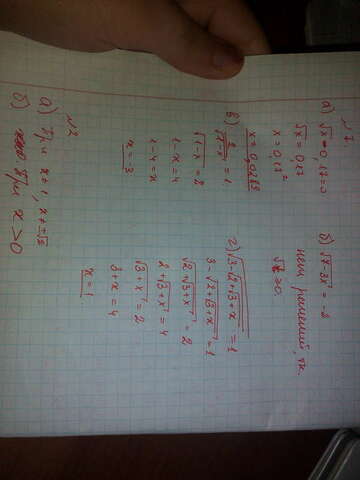 №1.
а) √x - 0,17 = 0
√x = 0,17
x = 0,17²
x = 0,0289
б) √7-3x = -2
нет решений, т.к.
√x ≥ 0
в) 2/√1-x = 1
√1-x = 2
1-x = 4
1-4 = x
x = -3
г) √3-√2+√3+x = 1
3-√2+√3+x = 1
√2+√3+x = 2
2+√3+x = 4
√3+x = 2
3+x = 4
x = 1
№2
а) При x ≠ 1,
б) При x > 0